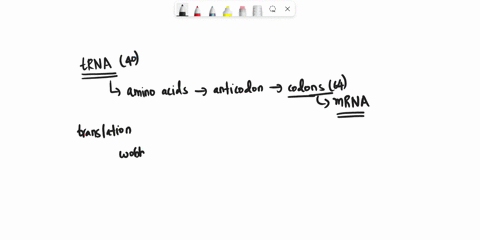 tRNA (40)
↳ amino acids → anticodon → codons (64)
↳ mRNA
translation
wobb